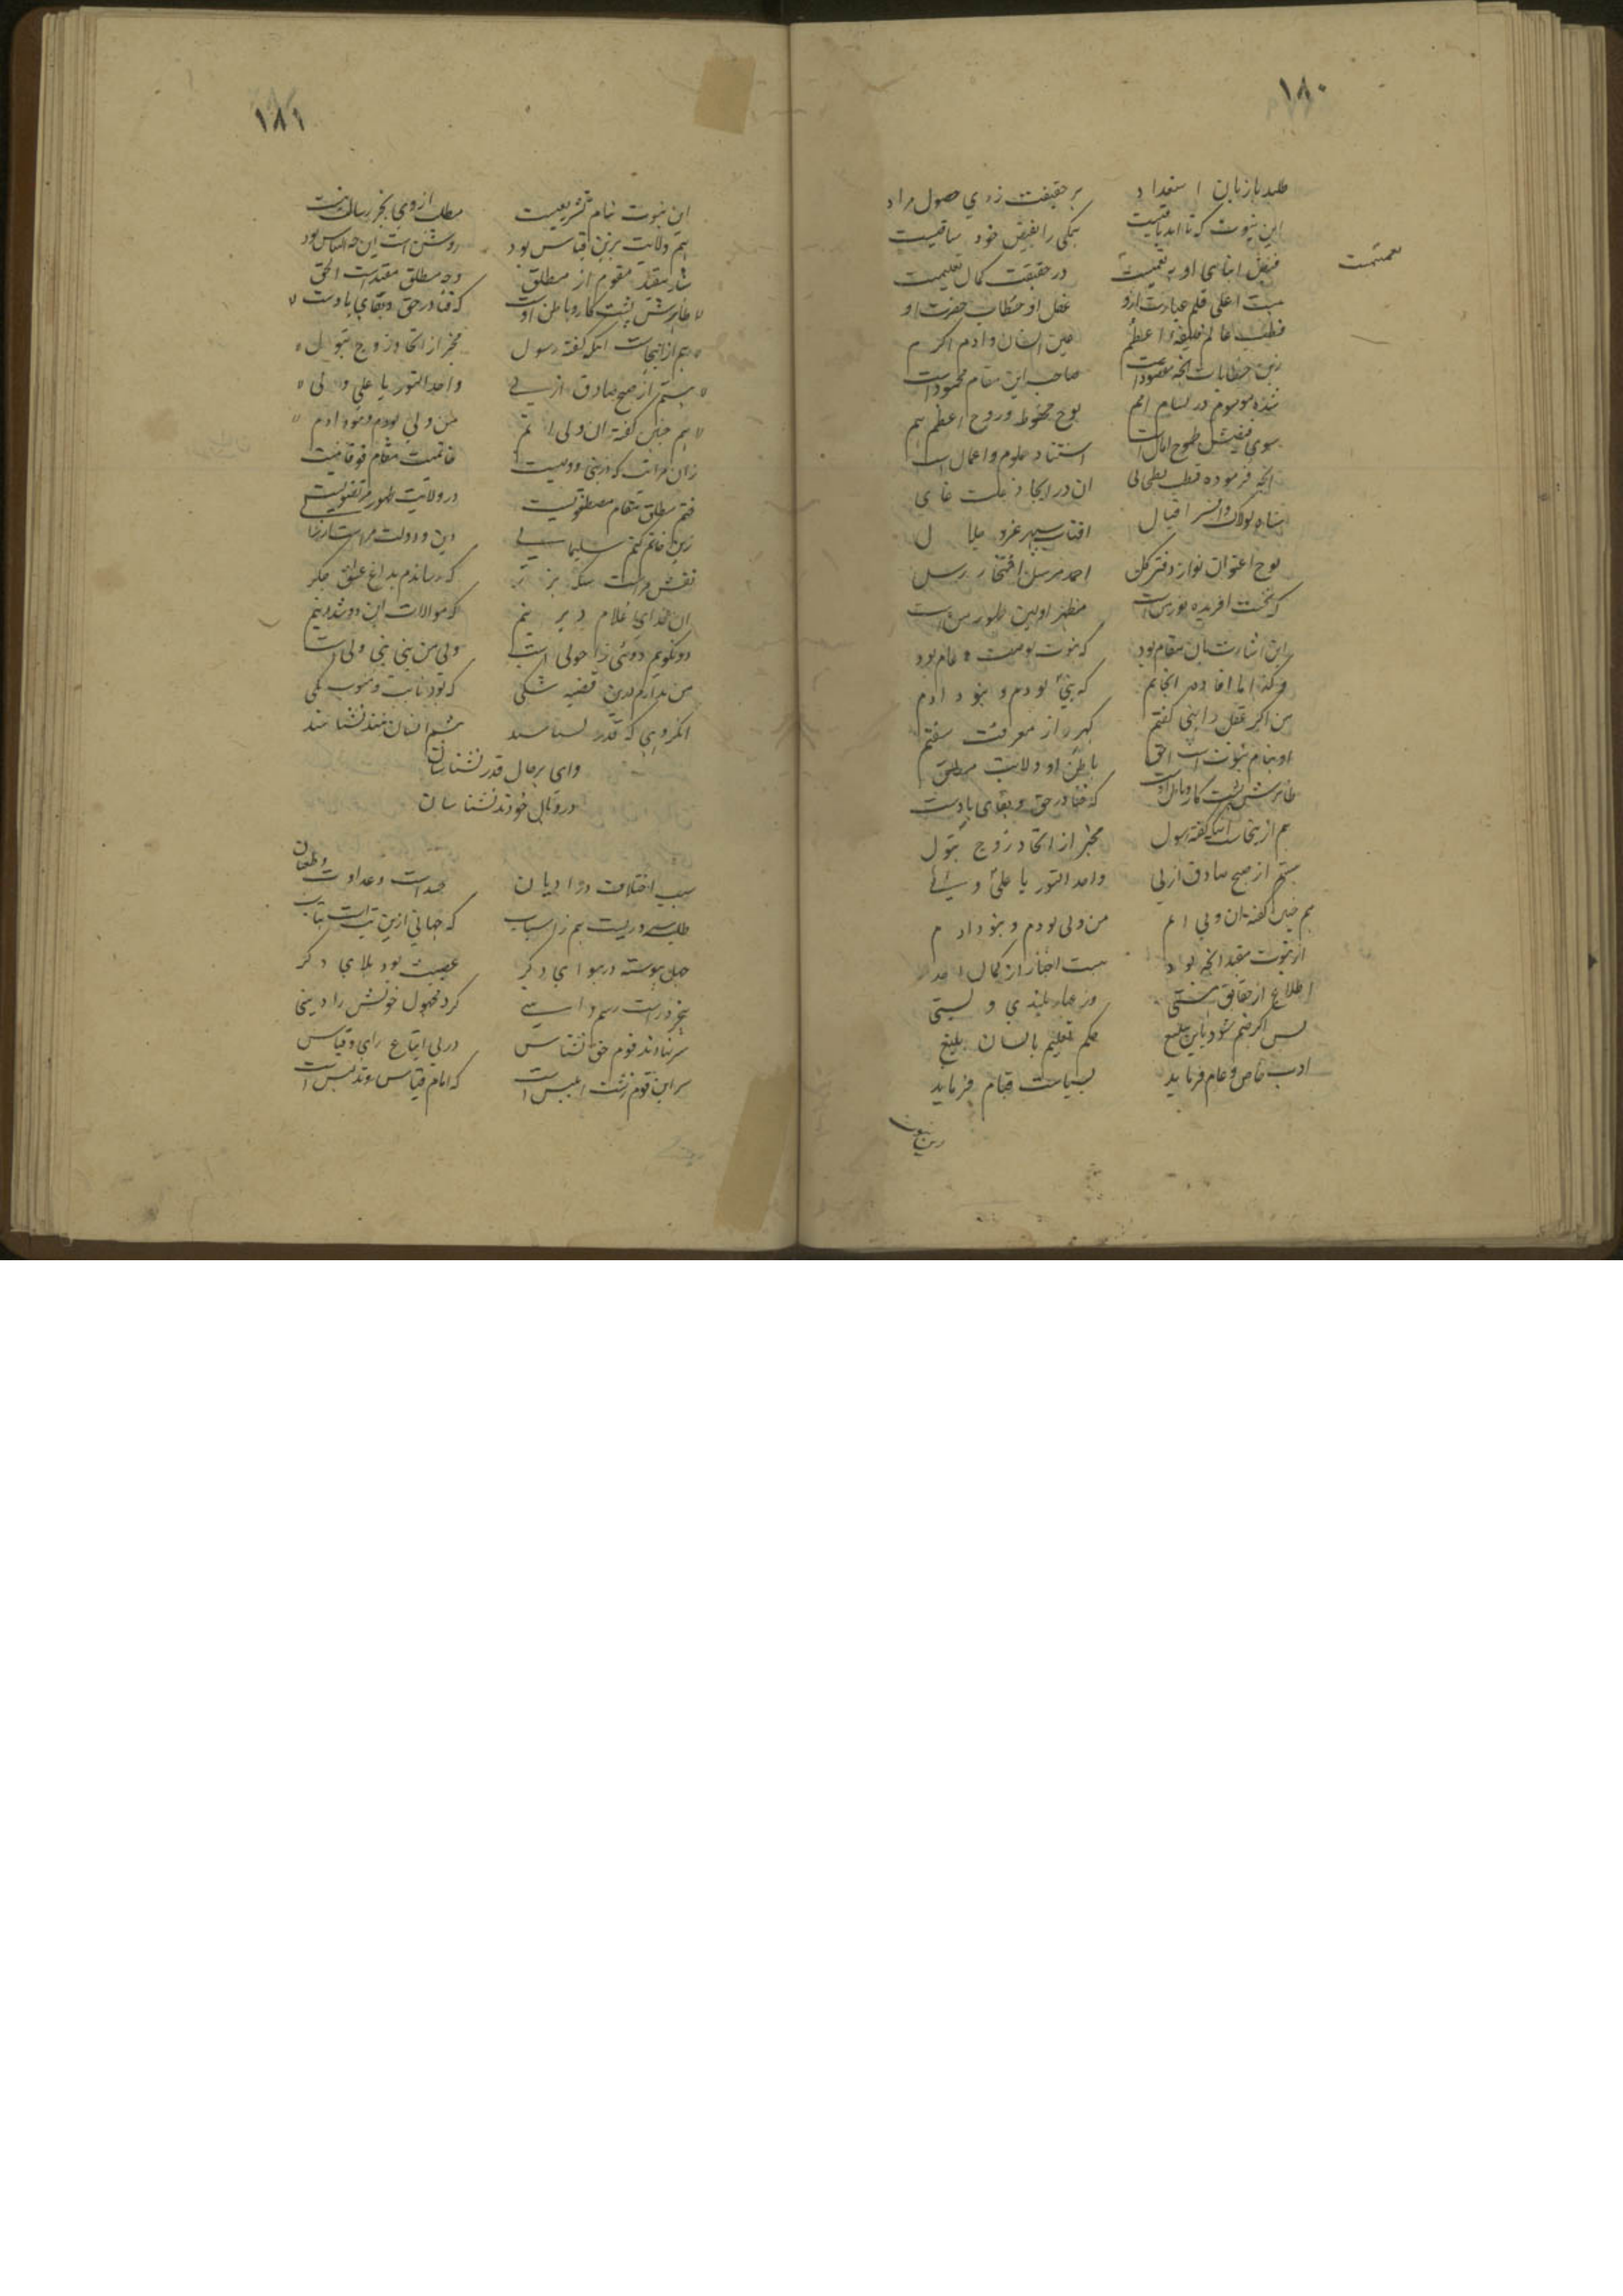 ۱۸۰
طلبد با زبان استعداد بر حقیقت ز وی حصول مراد
این نبوت که تا ابد باقیست همگی را بفیض خود ساقیست
در حقیقت کمال تعلیمیست
هست اعلی قلم عبارت ازو عقل او خطاب حضرت او
قطب عالم خلیفه اعظم عین انسان و ادم اکرم
زین خطابات انچه مقصود است صاحب این مقام محمود است
شده موسوم در لسام امم لوح محفوظ و روح اعظم هم
سوی فیضش طموح امال است استناد علوم و اعمال است
انچه فرموده قطب بطحائی ان در ایجاد علت غائی
شاه لولاک و افسر اقبال افتاب سپهر عز و جلال
لوح اعنوان نواز دفتر کل احمد مرسل افتخار رسل
که نخست افریده نور من است مظهر اولین ظهور من است
این اشارت بان مقام بود که نبوت بوصف عام بود
که نبی بودم و نبود ادم
من اگر عقل را نبی گفتم گهر از معرفت سفتم
او بنام نبوت است احق باطن او ولایت مطلق
ظاهرش پشت کار و باطن اوست که فنا در حق و بقای باوست
هم ازینجاست انکه گفته رسول مخبر از اتحاد زوج بتول
هستم از صبح صادق ازلی واحد النور یا علی و
هم چنین گفته ان ولی امم من ولی بودم و نبود ادم
از نبوت مقید انچه بود هست اخبار از کمال احد
اطلاع از حقایق هستی وز جهار بلندی و پستی
پس اگر ضم شود باین تبلیغ حکم تعلیم بالسان بلیغ
ادب خاص و عام فرماید بسیاست قیام فرماید
این نبوت
۱۸۱
این نبوت بنام تشریعیست
هم ولایت برین قیاس بود روشن است این چه التباس بود
شد مقید مقوم از مطلق وجه مطلق مقید است الحق
ظاهرش پشت کار و باطن اوست که فنا در حق و بقای باوست
هم ازینجاست انکه گفته رسول مخبر از اتحاد زوج بتول
هستم از صبح صادق ازلی واحد النور یا علی ولی
هم چنین گفته ان ولی اتم من ولی بودم و نبود ادم
زان مراتب که در نبی و ولیست خاتمیت مقام فوقانیست
ختم مطلق مقام مصطفویست در ولایت ظهور مرتضویست
زین خاتم کنم سلیمانی دین و دولت مراست ارزانی
نقش مراست سکه بزر که رساندم بداغ عشق جگر
ان خدای غلام دیرینم که موالات این دو شد دینم
دو نگویم دوئی ز احولی است ولی من نبی نبی ولی است
من ندارم درین قضیه شکی که بود نایب و منوب یکی
انگروهی که قدر نشناسند بتم انسان نیند نسناسند
وای بر حال قدر نشناسان
در وبال خودند نشناسان
سبب اختلاف در ادیان حسد است و عداوت و طغیان
طلب سروریست هم ز اسباب که جهانی ازین تب است بتاب
جهل پیوسته در هوای دگر عصبیت بود بلای دگر
کرد مجهول خویش را دینی
سر نهادند قوم حق نشناس در پی اتباع رای و قیاس
سر این قوم زشت ابلیس است که امام قیاس و تدلیس است